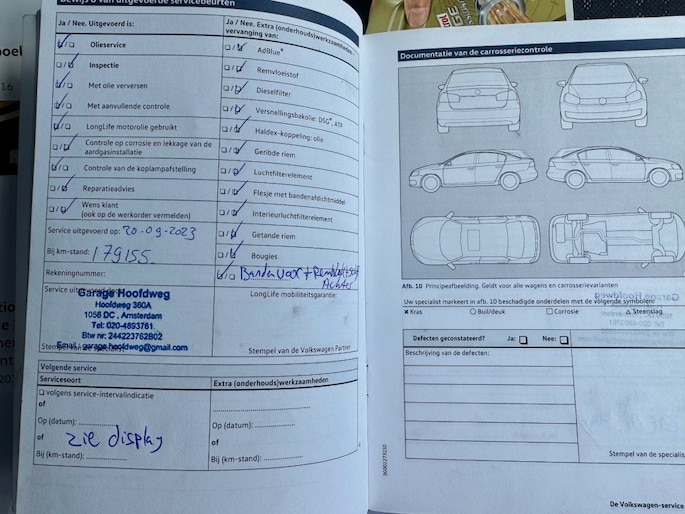 Bewijs u van uitgevoerde servicebeurten
Ja / Nee. Uitgevoerd is:
Olieservice
Inspectie
Met olie verversen
Met aanvullende controle
LongLife motorolie gebruikt
Controle op corrosie en lekkage van de
aardgasinstallatie
Controle van de koplampafstelling
Reparatieadvies
Wens klant
(ook op de werkorder vermelden)
Service uitgevoerd op: 20-09-2023
Bij km-stand: 179155.
Rekeningnummer:
Garage Hoofdweg
Hoofdweg 360A
1056 DC, Amsterdam
Tel: 020-4893761
Btw nr: 244223762B02
Email: garage.hoofdweg@gmail.com
Stempel van de
Ja / Nee. Extra (onderhouds)werkzaamheden
vervanging van:
AdBlue®
Remvloeistof
Dieselfilter
Versnellingsbakolie: DSG®, ATF
Haldex-koppeling: olie
Geribde riem
Luchtfilterelement
Flesje met bandenafdichtmiddel
Interieurluchtfilterelement
Getande riem
Bougies
Achter
LongLife mobiliteitsgarantie:
Stempel van de Volkswagen Partner
Volgende service
Servicesoort
volgens service-intervalindicatie
of
Op (datum):
of zie display
Bij (km-stand):
Extra (onderhouds)werkzaamheden
Op (datum):
of
Bij (km-stand):
Documentatie van de carrosseriecontrole
Afb. 10 Principeafbeelding. Geldt voor alle wagens en carrosserievarianten
Uw specialist markeert in afb. 10 beschadigde onderdelen met de volgende symbolen:
Kras
Buil/deuk
Corrosie
Steenslag
Defecten geconstateerd? Ja: Nee:
Beschrijving van de defecten:
Stempel van de specialis
3G0012732JD
De Volkswagen-service